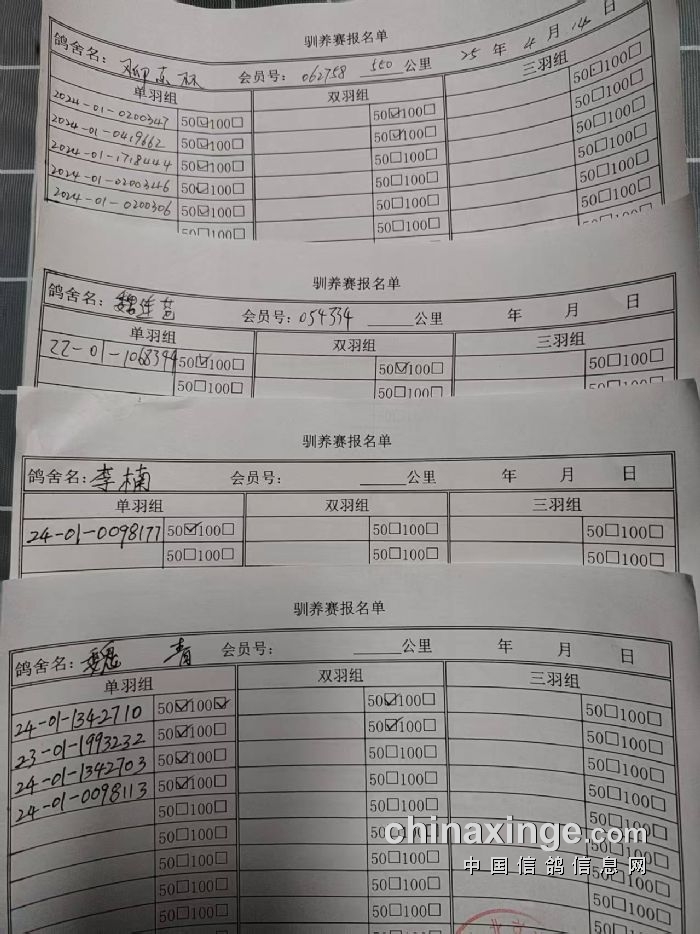 驯养赛报名单
鸽舍名: 会员号: 062758 550公里 25 年 4 月 14 日
单羽组 双羽组 三羽组
2024-01-0200347 50☑100☐ 50☑100☐ 50☐100☐
2024-01-0419662 50☑100☐ 50☑100☐ 50☐100☐
2024-01-1718444 50☑100☐ 50☐100☐ 50☐100☐
2024-01-0200346 50☑100☐ 50☐100☐ 50☐100☐
2024-01-0200306 50☑100☐ 50☐100☐ 50☐100☐
50☐100☐ 50☐100☐ 50☐100☐
驯养赛报名单
鸽舍名: 会员号: 054334 公里 年 月 日
单羽组 双羽组 三羽组
22-01-1068394 50☑100☐ 50☑100☐ 50☐100☐
50☐100☐ 50☐100☐ 50☐100☐
驯养赛报名单
鸽舍名: 李楠 会员号: 公里 年 月 日
单羽组 双羽组 三羽组
24-01-0098177 50☑100☐ 50☐100☐ 50☐100☐
50☐100☐ 50☐100☐ 50☐100☐
驯养赛报名单
鸽舍名: 魏青 会员号: 公里 年 月 日
单羽组 双羽组 三羽组
24-01-1342710 50☑100☑ 50☑100☐ 50☐100☐
23-01-1993232 50☑100☐ 50☑100☐ 50☐100☐
24-01-1342703 50☑100☐ 50☐100☐ 50☐100☐
24-01-0098113 50☑100☐ 50☐100☐ 50☐100☐
50☐100☐ 50☐100☐ 50☐100☐
50☐100☐ 50☐100☐ 50☐100☐
50☐100☐ 50☐100☐ 50☐100☐
50☐100☐ 50☐100☐ 50☐100☐
50☐100☐ 50☐100☐
chinaxinge.com
中国信鸽信息网